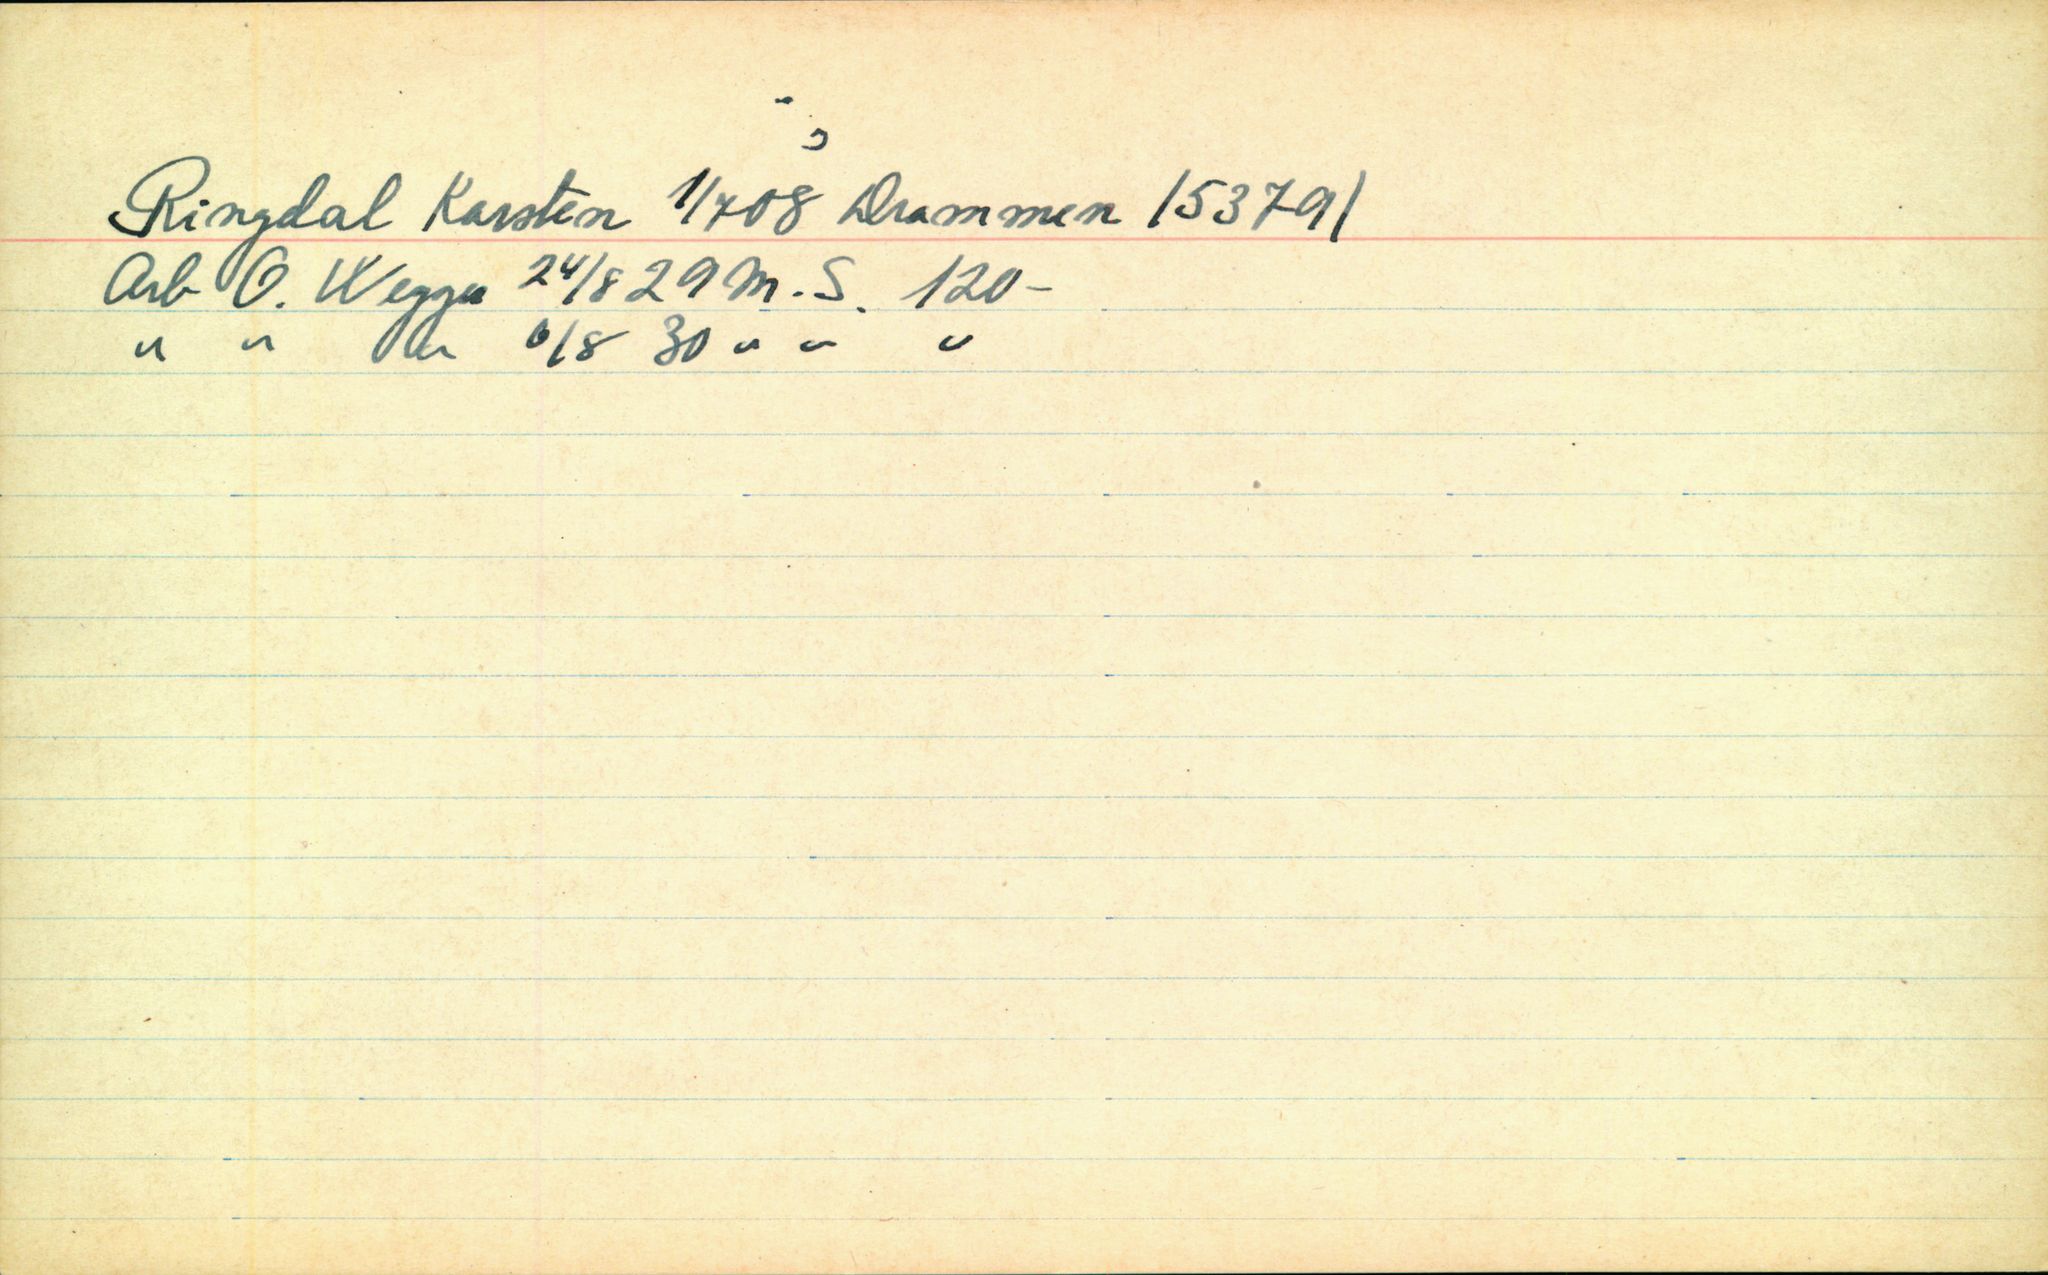 Ringdal Karsten 1/7 08 Drammen 153791
Arb O. Wegger 24/8 29 M. S. 120 -
" " " 6/8 30 " " "